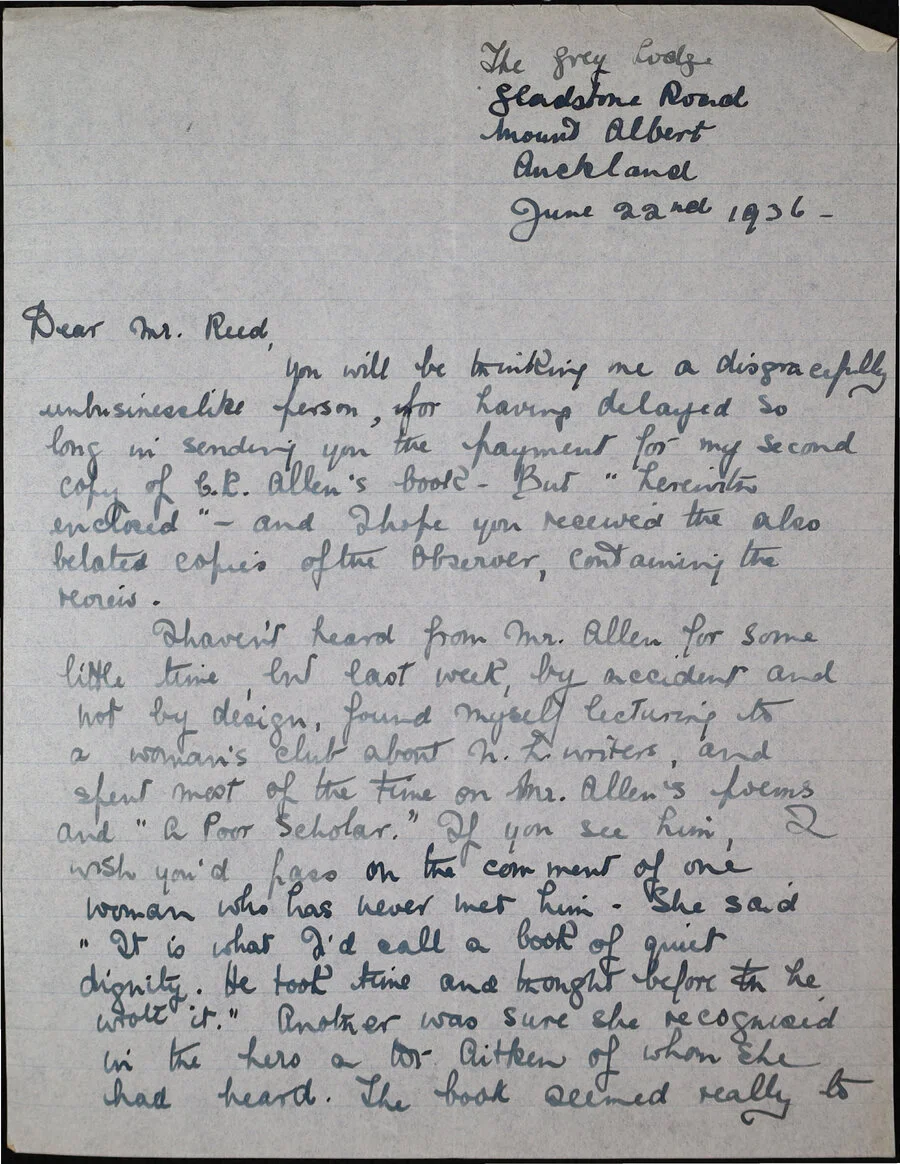 The Grey Lodge
Gladstone Road
Mount Albert
Auckland
June 22nd 1936 -
Dear Mr. Reed,
you will be thinking me a disgracefully
unbusinesslike person, for having delayed so
long in sending you the payment for my second
copy of C.R. Allen's book - But "herewith
enclosed" - and I hope you received the also
belated copies of the Observer, containing the
review.
I haven't heard from Mr. Allen for some
little time, but last week, by accident and
not by design, found myself lecturing to
a woman's club about N.Z. writers, and
spent most of the time on Mr. Allen's poems
and "A Poor Scholar." If you see him, I
wish you'd pass on the comment of one
woman who has never met him - She said
"It is what I'd call a book of quiet
dignity. He took time and thought before he
wrote it." Another was sure she recognised
in the hero a Dr Aitken of whom she
had heard. The book seemed really to